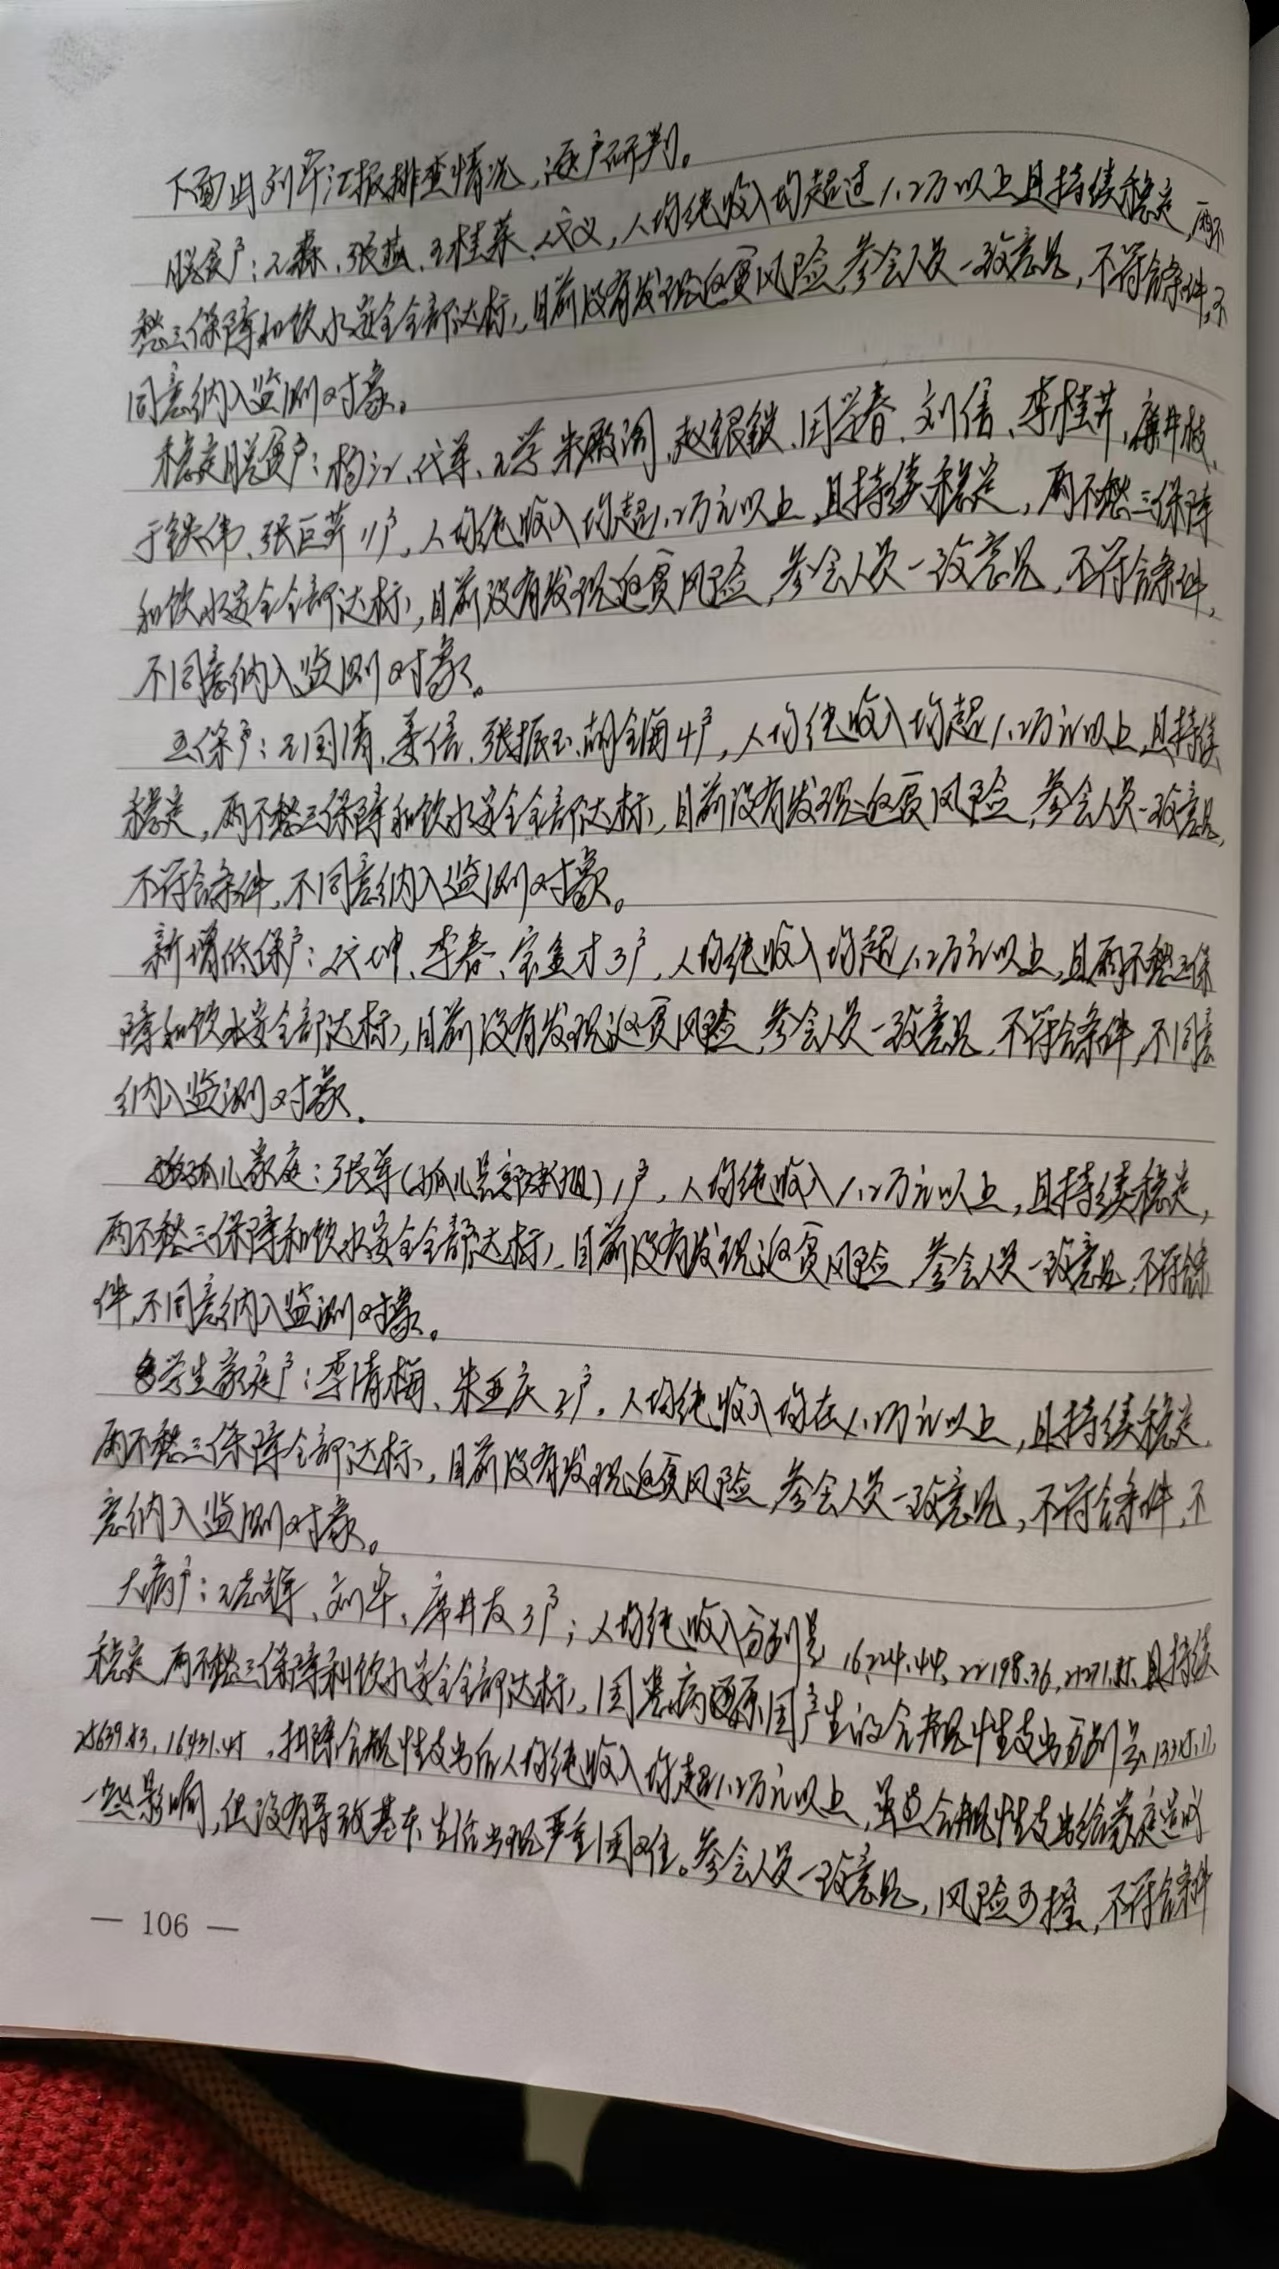 下面由刘军汇报排查情况,逐户研判。
脱贫户:王森、张燕、王桂荣、代义,人均纯收入均超过1.2万以上且持续稳定,两不
愁三保障和饮水安全全部达标,目前没有发现返贫风险,参会人员一致意见,不符合条件,不
同意纳入监测对象。
稳定脱贫户:杨江、代军、王学、朱殿阁、赵银铁、田学春、刘信、李桂芹、廉井枝、
于铁伟、张巨芹11户,人均纯收入均超1.2万元以上,且持续稳定,两不愁三保障
和饮水安全全部达标,目前没有发现返贫风险,参会人员一致意见,不符合条件,
不同意纳入监测对象。
五保户:王国清、姜信、张振玉、胡全海4户,人均纯收入均超1.2万元以上,且持续
稳定,两不愁三保障和饮水安全全部达标,目前没有发现返贫风险,参会人员一致意见,
不符合条件,不同意纳入监测对象。
新增低保户:代坤、李春、宗金才3户,人均纯收入均超1.2万元以上,且两不愁三保
障和饮水安全部达标,目前没有发现返贫风险,参会人员一致意见,不符合条件,不同意
纳入监测对象.
孤儿家庭:张军(孤儿是)1户,人均纯收入1.2万元以上,且持续稳定,
两不愁三保障和饮水安全全部达标,目前没有发现返贫风险,参会人员一致意见,不符合条
件,不同意纳入监测对象。
多学生家庭户:李清梅、朱亚庆2户,人均纯收入均在1.2万元以上,且持续稳定,
两不愁三保障全部达标,目前没有发现返贫风险,参会人员一致意见,不符合条件,不
意纳入监测对象。
大病户:王志军、刘军、席井友3户;人均纯收入分别是16224.44、22198.36、且持续
稳定,两不愁三保障和饮水安全全部达标,因患病原因产生的合规性支出分别是
25639.63、16431.45,扣除合规性支出后人均纯收入均超1.2万元以上,虽然合规性支出给家庭造成
一些影响,但没有导致基本生活出现严重困难。参会人员一致意见,风险可控,不符合条件
— 106 —